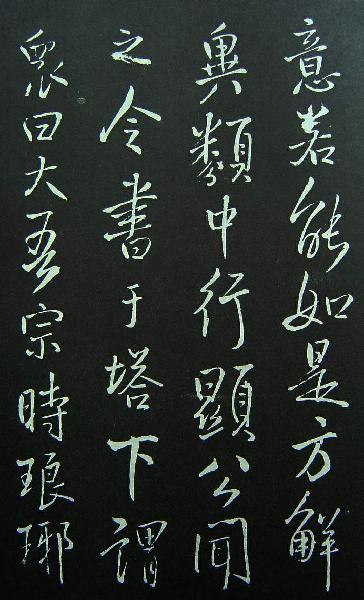 意若能如是方解
異類中行顯公聞
之令書于塔下謂
眾曰大吾宗時琅
瑘